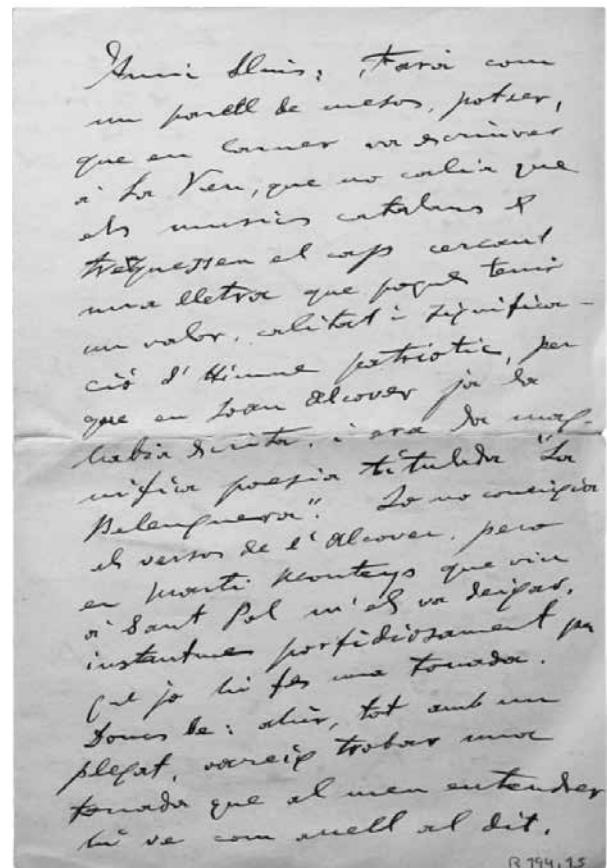 Amic Lluis: Farà com
un parell de mesos, potser,
que en Carner va escriurer
a La Veu, que no calia que
els musics catalans es
trenquessen el cap cercant
una lletra que pogués tenir
un valor, calitat i significa-
ció d'Himne patriotic, per
que en Joan Alcover ja la
habia escrita, i era la mag-
nifica poesia titulada "La
Balenguera". Jo no coneixia
els versos de l'Alcover, pero
en Martí Monteys que viu
a Sant Pol m'els va deixar,
instantme porfidiosament per
que jo hi fes una tonada.
Doncs be: ahir, tot amb un
plegat, vareig trobar una
tonada que al meu entendrer
hi ve com anell al dit.
B 794,15